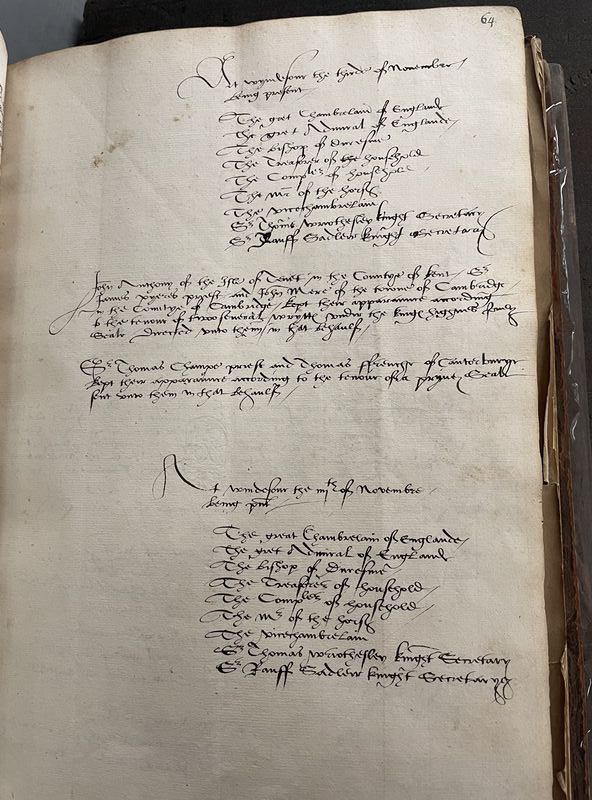 64
At wyndesour the thirde of Novembre
being present
The gret Chambrelain of Englande
The gret Admiral of Englande
The Bishop of Duresme
The Treasorer of the household
The Comples of household
The Mr of the horse
The vicechambrelain
Sr Thoms wriothesley knight Secretary
Sr Rauff Sadleir knight Secretary
John Anthony of the Isle of Tenet in the Countye of kent Sr
James pyeres pryest and John Mere of the towne of Cambridge
in the Countye of Cambridge kept their apparaunce according
to the tenour of severall wrytts under the kings highnes privy
Seale directed unto them in that behaulf
Sr Thomas Champe priest and Thomas ffrenche of Canterburye
kept their apparaunce according to the tenour of a pryvey Seale
sent unto them in that behaulf
At windesour the iiijth of Novembre
being pnt
The great Chambrelain of Englande
The gret Admiral of Englande
The Bishop of Duresme
The Treasorer of household
The Comples of household
The Mr of the horse
The vicechambrelain
Sr Thomas wriothesley knight Secretary
Sr Rauff Sadleir knight Secretary